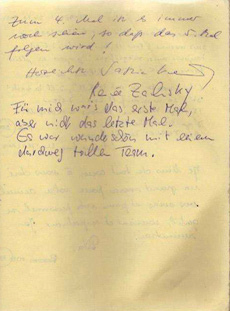 Zum 4. Mal ist es immer
noch schön, so daß das 5. Mal
folgen wird!
Renée Zalisky
Für mich war's das erste Mal,
aber nicht das letzte Mal.
Es war wunderschön mit einem
durchweg tollen Team.